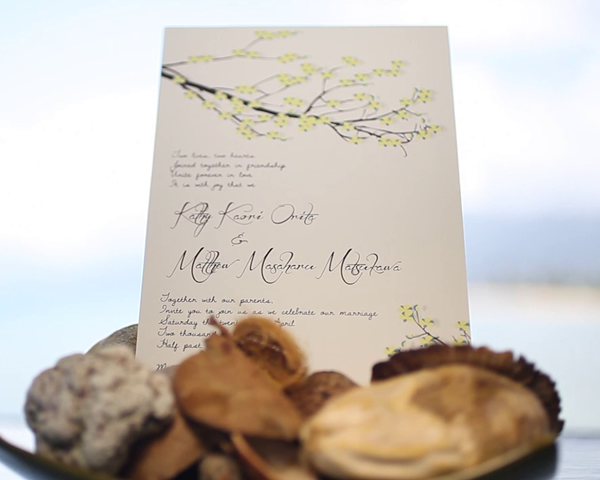 Two lives, two hearts
Joined together in friendship
Unite forever in love
It is with joy that we
Kathy Kaori Orita
&
Matthew Masaharu Matsukawa
Together with our parents,
Invite you to join us as we celebrate our marriage
Saturday the April
Two thousand
Half past